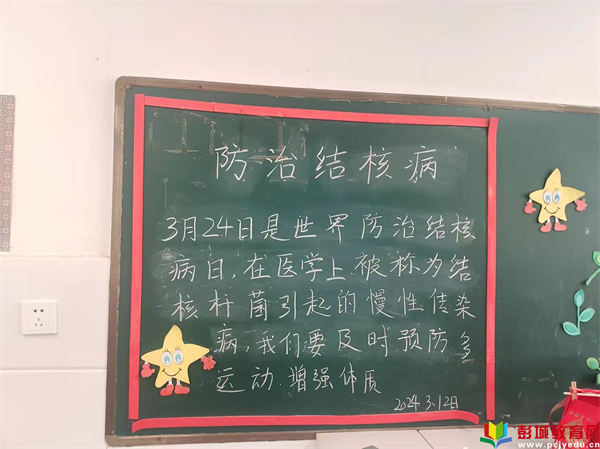 防治结核病
3月24日是世界防治结核
病白,在医学上被称为结
核杆菌引起的慢性传染
病,我们要及时预防多
运动.增强体质
2024.3.12日
彭城教育网
www.pcjyedu.cn